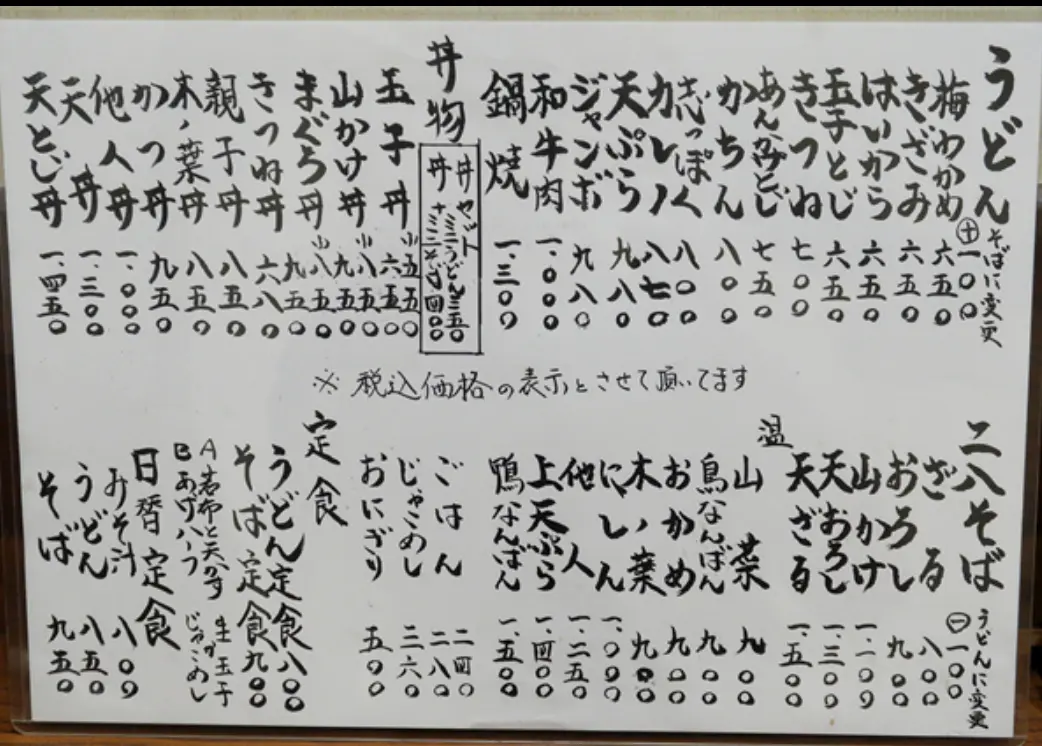 うどん
そばに変更 ㊉一〇〇
梅わかめ 六五〇
きざみ 六五〇
はいから 六五〇
玉子とじ 六五〇
きつね 七〇〇
七五〇
かちん 八〇〇
しっぽく 八〇〇
カレー 八七〇
天ぷら 九八〇
ジャンボ 九八〇
和牛肉 一、〇〇〇
鍋焼 一、三〇〇
丼物
丼セット ミニうどん 三五〇
丼+ミニそば 四〇〇
玉子丼 小五五〇 六五〇
山かけ丼 八五〇 九五〇
まぐろ丼 小八五〇 九五〇
きつね丼 六八〇
親子丼 八五〇
木ノ葉丼 八五〇
かつ丼 九五〇
他人丼 一、〇〇〇
天丼 一、三〇〇
天とじ丼 一、四五〇
※税込価格の表示とさせて頂いてます
二八そば
うどんに変更 ㊀一〇〇
ざる 八〇〇
おろし 九〇〇
山かけ 一、一〇〇
天おろし 一、三〇〇
天ざる 一、五〇〇
温
山菜 九〇〇
鳥なんばん 九〇〇
おかめ 九〇〇
木ノ葉 九〇〇
にしん 一、〇〇〇
他人 一、二五〇
上天ぷら 一、四〇〇
鴨なんばん 一、五〇〇
ごはん 二四〇
じゃこめし 二八〇
三六〇
おにぎり 五〇〇
定食
うどん定食 八〇〇
そば定食 九〇〇
A 若布と天かす 生玉子
B あげハーフ じゃこめし
日替定食
みそ汁 八〇〇
うどん 八五〇
そば 九五〇